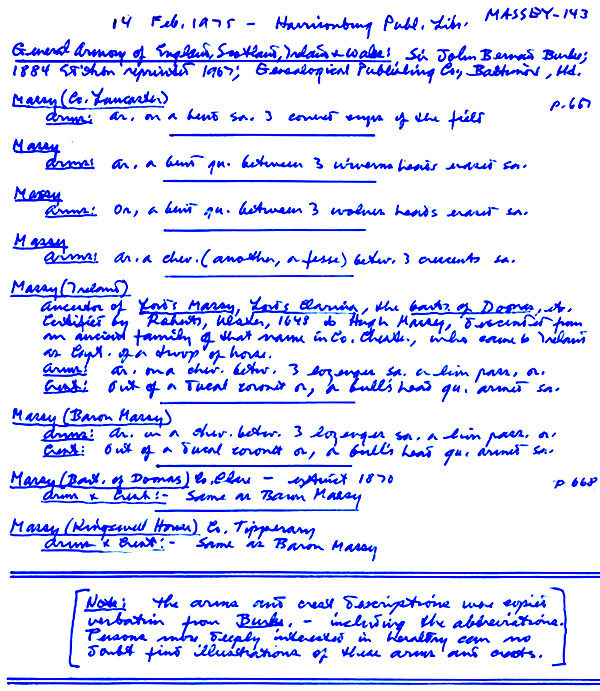 MASSEY-143
14 Feb. 1975 - Harrisonburg Publ. Lib.
General Armory of England, Scotland, Ireland & Wales: Sir John Bernard Burke;
1884 Edition reprinted 1967; Genealogical Publishing Co., Baltimore, Md.
Massy (Co. Lancaster) p. 667
Arms: Ar. on a bend sa. 3 covered cups of the field
Massy
Arms: Ar. a bend gu. between 3 wiverns heads erased sa.
Massy
Arms: Or, a bend gu. between 3 wolves heads erased sa.
Massy
Arms: Ar. a chev. (another, a fesse) betw. 3 crescents sa.
Massy (Ireland)
Ancestor of Lords Massy, Lords Clarina, the barts. of Doonas, etc.
Certified by Roberts, Ulster, 1648 to Hugh Massy, descended from
an ancient family of that name in Co. Chester, who came to Ireland
as Capt. of a troop of horse.
Arms: Ar. on a chev. betw. 3 lozenges sa. a lion pass. or.
Crest: Out of a ducal coronet or, a bull's head gu. armed sa.
Massy (Baron Massy)
Arms: Ar. on a chev. betw. 3 lozenges sa. a lion pass. or.
Crest: Out of a ducal coronet or, a bull's head gu. armed sa.
Massy (Bart. of Doonas) Co. Clare - extinct 1870 p 668
Arms & Crest:- Same as Baron Massy
Massy (Kingswell House) Co. Tipperary
Arms & Crest:- Same as Baron Massy
[Note: The arms and crest descriptions were copied
verbatim from Burke, - including the abbreviations.
Persons more deeply interested in heraldry can no
doubt find illustrations of these arms and crests.]